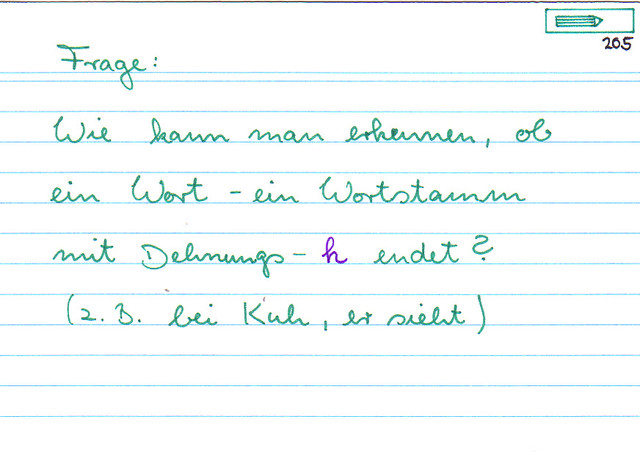 205
Frage:
Wie kann man erkennen, ob
ein Wort - ein Wortstamm
mit Dehnungs-h endet?
(z.B. bei Kuh, er sieht)